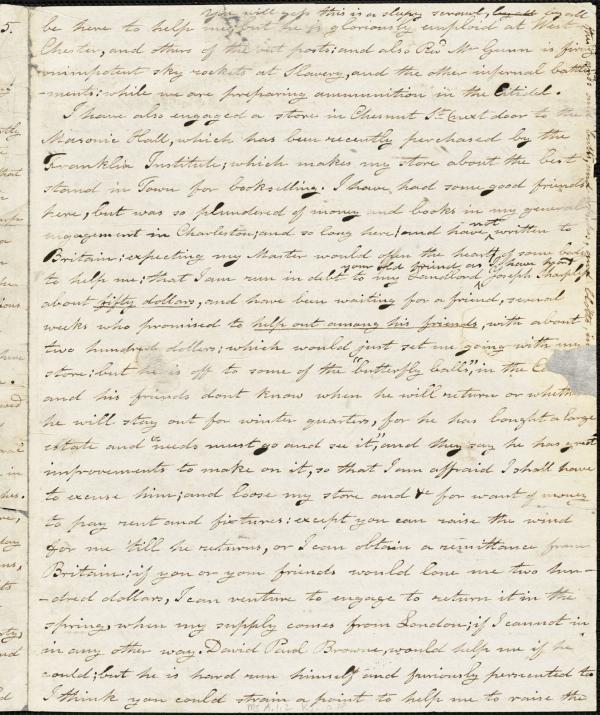 you will say this is a sleepy scrawl,
be here to help me, but he is gloriously emploid at West
Chester, and others of the out posts: and also Revd Mr Gunn is firing
omnipotent sky rockets at Slavery, and the other infernal battle-
-ments: while we are preparing ammunition in the Citidel.
I have also engaged a store in Chesnut St. (next door to the
Masonic Hall, which has been recently perchased by the
Franklin Institute; which makes my store about the best
stand in Town for bookselling. I have had some good friends
here, but was so plundered of money and books in my general
engagement in Charleston; and so long here; and have not written to
Britain; expecting my Master would open the hearts of some body
your old friend as I have heard
to help me; that I am run in debt to my Landlord Joseph
about fifty dollars, and have been waiting for a friend, several
weeks who promised to help out among his friends, with about
two hundred dollers; which would just set me going with my
store; but he is off to some of the "butterfly balls", in the
and his friends dont know when he will return or whith
he will stay out for winter quarters, for he has bought a large
estate and "needs must go and see it", and they say he has great
improvements to make on it, so that I am affraid I shall have
to excuse him; and loose my store and &c for want of money
to pay rent and fixtures: except you can raise the wind
for me 'till he returns, or I can obtain a remittance from
Britain: if you or your friends would lone me two hun-
-dred dollars, I can venture to engage to return it in the
spring, when my supply comes from London; if I cannot in
in any other way. David Paul Browne, would help me if he
could; but he is hard run himself and furiously persecuted to
I think you could strain a point to help me to raise the